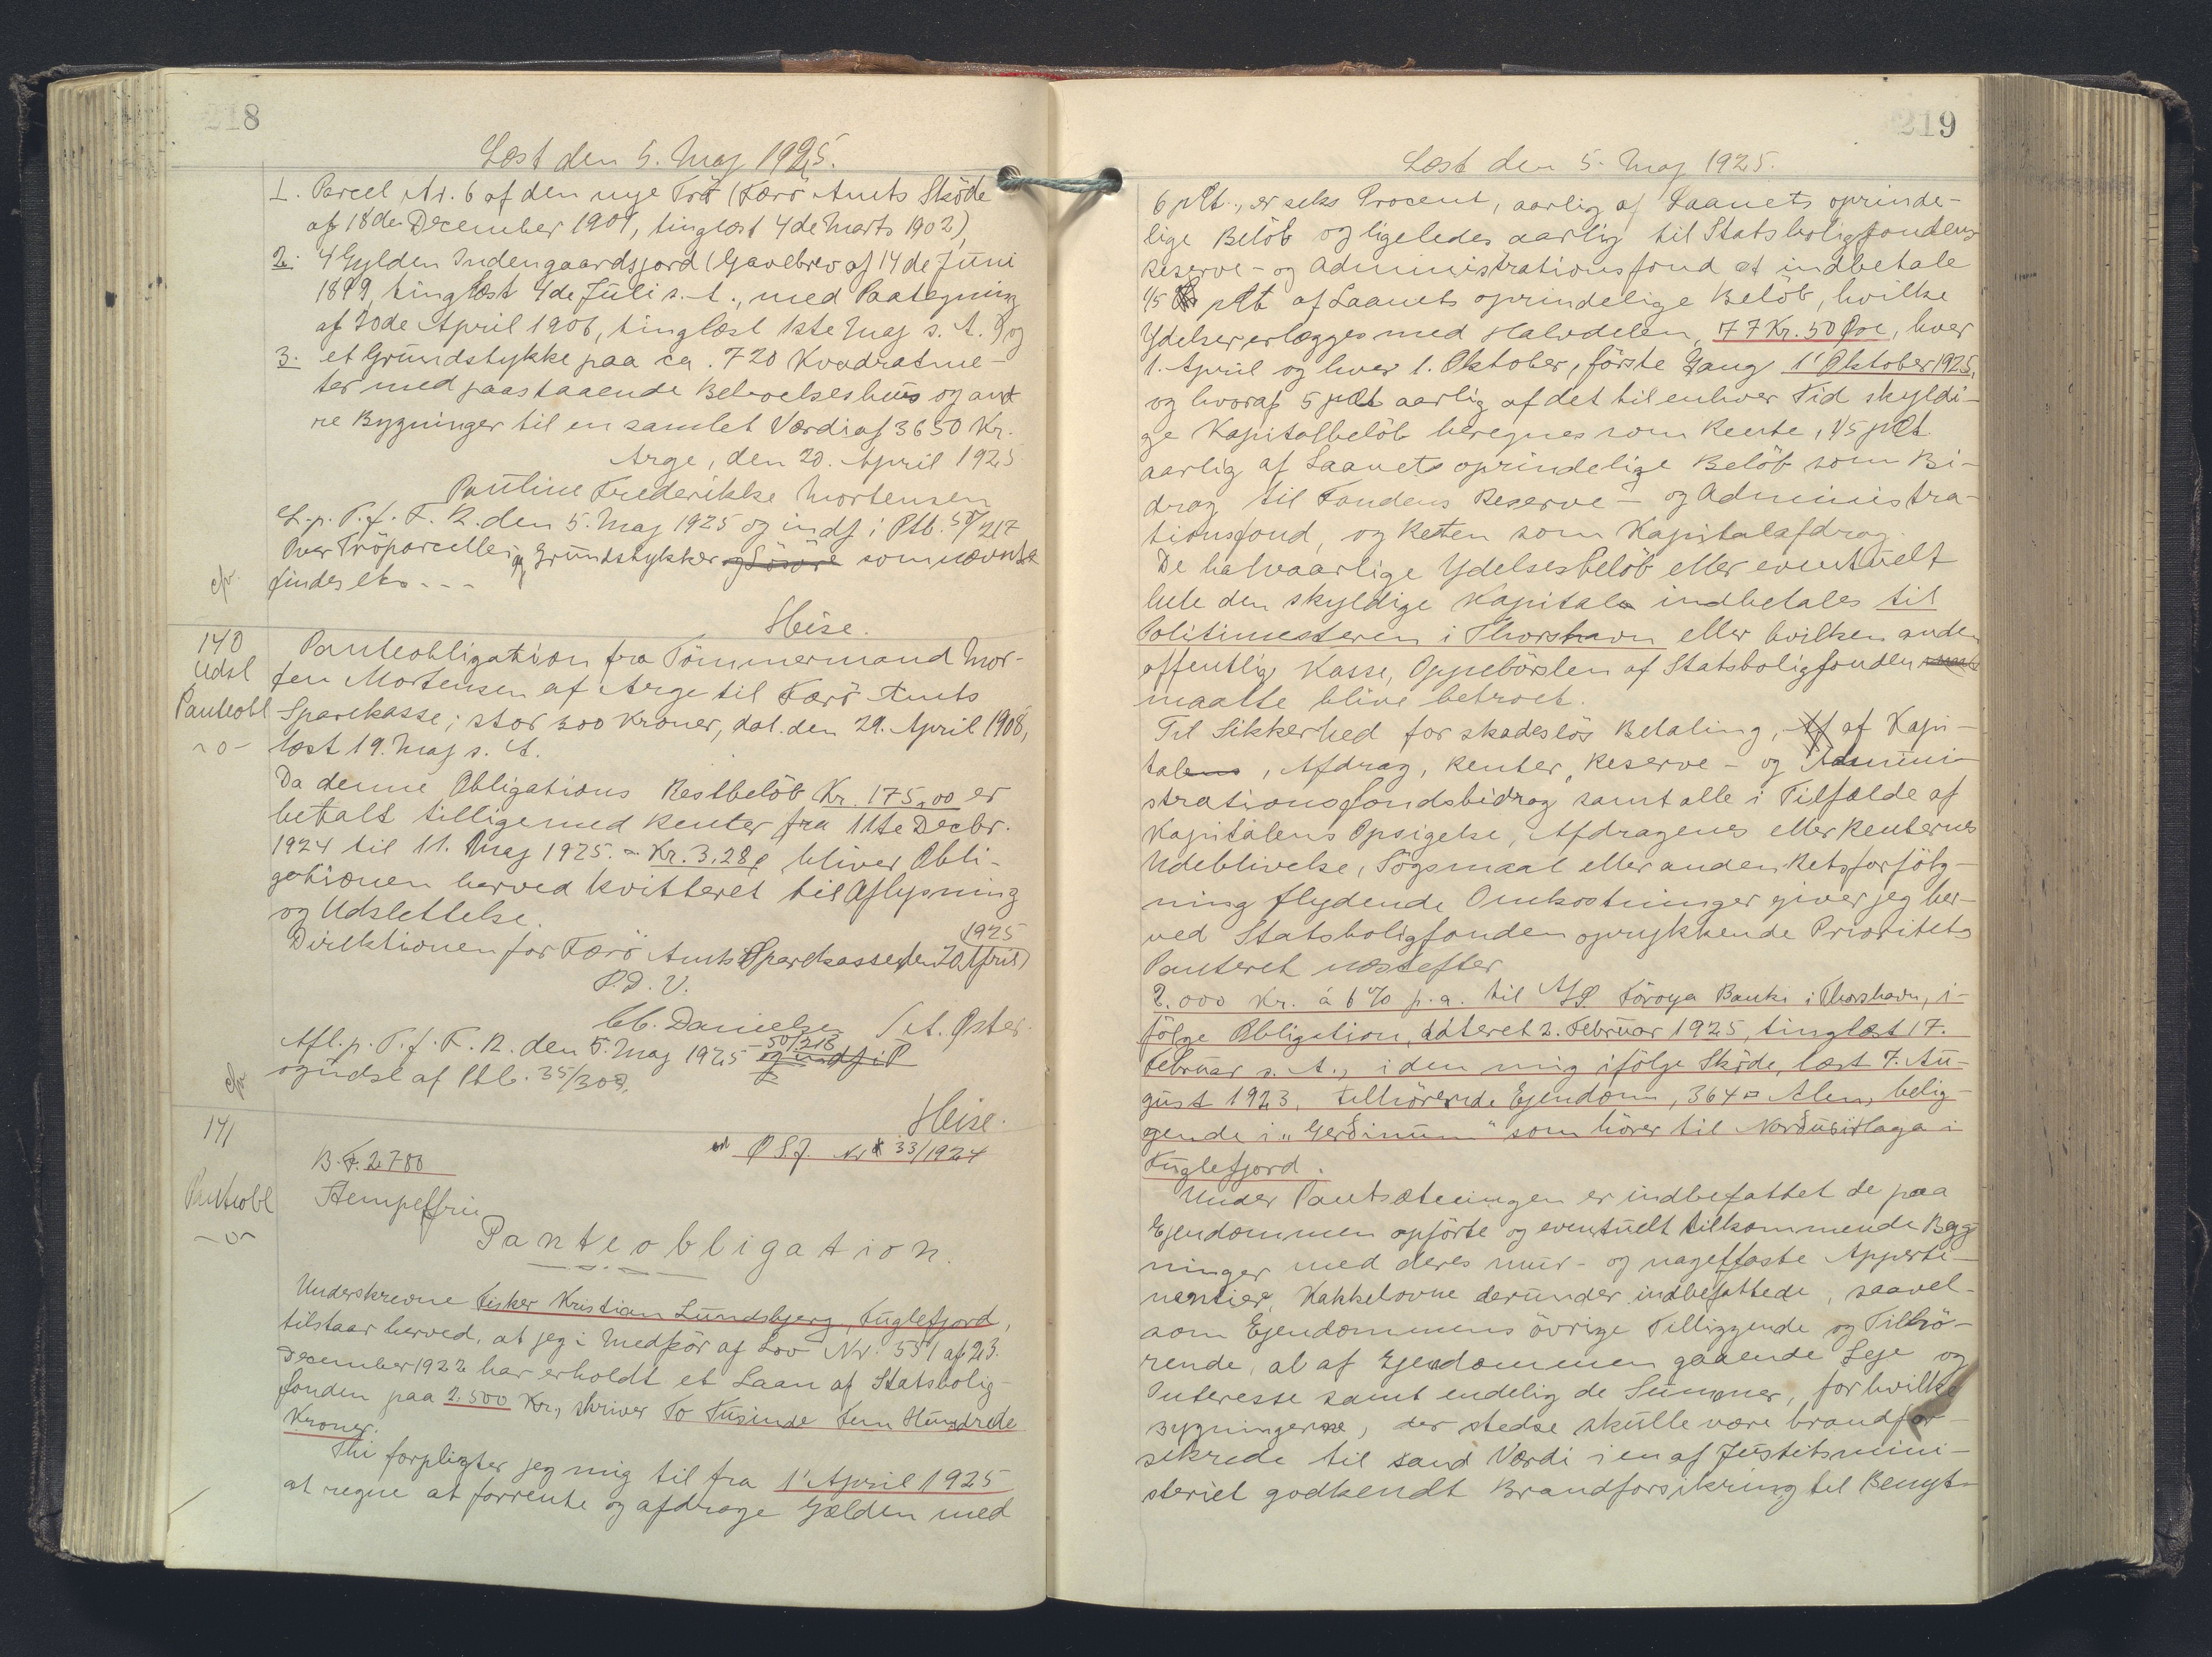 218
Læst den 5. Maj 1925.
1. Parcel Nr. 6 af den nye Trö (Færö Amts Sköde
af 18de December 1901, tinglæst 4de Marts 1902),
2. 4 Gylden Indengaardsjord (Gavebrev af 14de Juni
1899, tinglæst 4de Juli s. A., med Paategning
af 20de April 1906, tinglæst 1ste Maj s. A.) og
3. et Grundstykke paa ca. 720 Kvadratme-
ter med paastaaende Beboelseshus og and
re Bygninger til en samlet Værdi af 3650 Kr.
Arge, den 20. April 1925.
Pauline Frederikke Mortensen
L. p. T. f. F. R. den 5. Maj 1925 og indf i Ptb. 50/217
Over Tröparcellen og Grundstykker og Lösöre som nævnte
findes etc - - -
cfr.
Heise.
140
Udsl
Panteobl
~o~
Panteobligation fra Tömmermand Mor-
ten Mortensen af Arge til Færö Amts
Sparekasse; stor 300 Kroner, dat. den 29. April 1908,
læst 19. Maj s. A.
Da denne Obligations Restbelöb Kr. 175,00 er
betalt tilligemed Renter fra 11te Decbr.
1924 til 11. Maj 1925. = Kr. 3,28 bliver Obli-
gationen herved kvitteret til Aflysning
og Udslettelse.
Direktionen for Færö Amts Sparekasse, den 20 April 1925
P. D. V.
Cb. Danielsen Jct. Öster.
Afl. p. T. f. F. R. den 5. Maj 1925 50/218 og indf i P
og udsl af Ptb. 35/308.
cfr
Heise.
141
Panteobl
~o~
B. F. 2788
Stempelfri
ad PSJ Nr 33/1924
Panteobligation.
Underskrevne Fisker Kristian Lundsbjerg, Fuglefjord,
tilstaar herved, at jeg i Medför af Lov Nr. 551 af 23.
December 1922 har erholdt et Laan af Statsbolig-
fonden paa 2.500 Kr., skriver To Tusinde Fem Hundrede
Kroner.
Thi forpligter jeg mig til fra 1' April 1925
at regne at forrente og afdrage Gælden med
219
Læst den 5. Maj 1925.
6 pCt., er seks Procent, aarlig af Laanets oprinde-
lige Belöb og ligeledes aarlig til Statsboligfondens
Reserve- og Administrationsfond at indbetale
1/5 pCt af Laanets oprindelige Belöb, hvilke
Ydelser erlægges med Halvdelen, 77 Kr. 50 Öre, hver
1. April og hver 1. Oktober, förste Gang 1' Oktober 1925,
og hvoraf 5 pCt aarlig af det til enhver Tid skyldi-
ge Kapitalbelöb beregnes som Rente, 1/5 pCt
aarlig af Laanets oprindelige Belöb som Bi-
drag til Fondens Reserve- og Administra-
tionsfond, og Resten som Kapitalafdrag.
De halvaarlige Ydelsesbelöb eller eventuelt
hele den skyldige Kapital indbetales til
Politimesteren i Thorshavn eller hvilken anden
offentlig Kasse, Oppebörslen af Statsboligfonden
maatte blive betroet.
Til Sikkerhed for skadeslös Betaling, Af af Kapi-
talens, Afdrag, Renter, Reserve- og Admini-
strationsfondsbidrag samt alle i Tilfælde af
Kapitalens Opsigelse, Afdragenes eller Renternes
Udeblivelse, Sögsmaal eller anden Retsforfölg-
ning flydende Omkostninger giver jeg her-
ved Statsboligfonden oprykkende Prioritets
Panteret næstefter
2.000 Kr. á 6% p.a. til A/S. Föroya Banki i Thorshavn, i-
fölge Obligation, dateret 2. Februar 1925, tinglæst 17.
Februar s. A., i den mig ifölge Sköde, læst 7. Au-
gust 1923, tilhörende Ejendom, 364 □ Alen, belig-
gende i "Gerðinum" som hörer til Norðuistlaga i
Fuglefjord.
Under Pantsætningen er indbefattet de paa
Ejendommen opförte og eventuelt tilkommende Byg-
ninger med deres mur- og nagelfaste Apperti-
nentier, Kakkelovne derunder indbefattede, saavel-
som Ejendommens övrige Tilliggende og Tilhö-
rende, al af Ejendommen gaaende Leje og
Interesse samt endelig de Summer, for hvilke
Bygningerne, der stedse skulle være brandfor-
sikrede til sand Værdi i en af Justitsmini-
steriet godkendt Brandforsikring til Benyt-